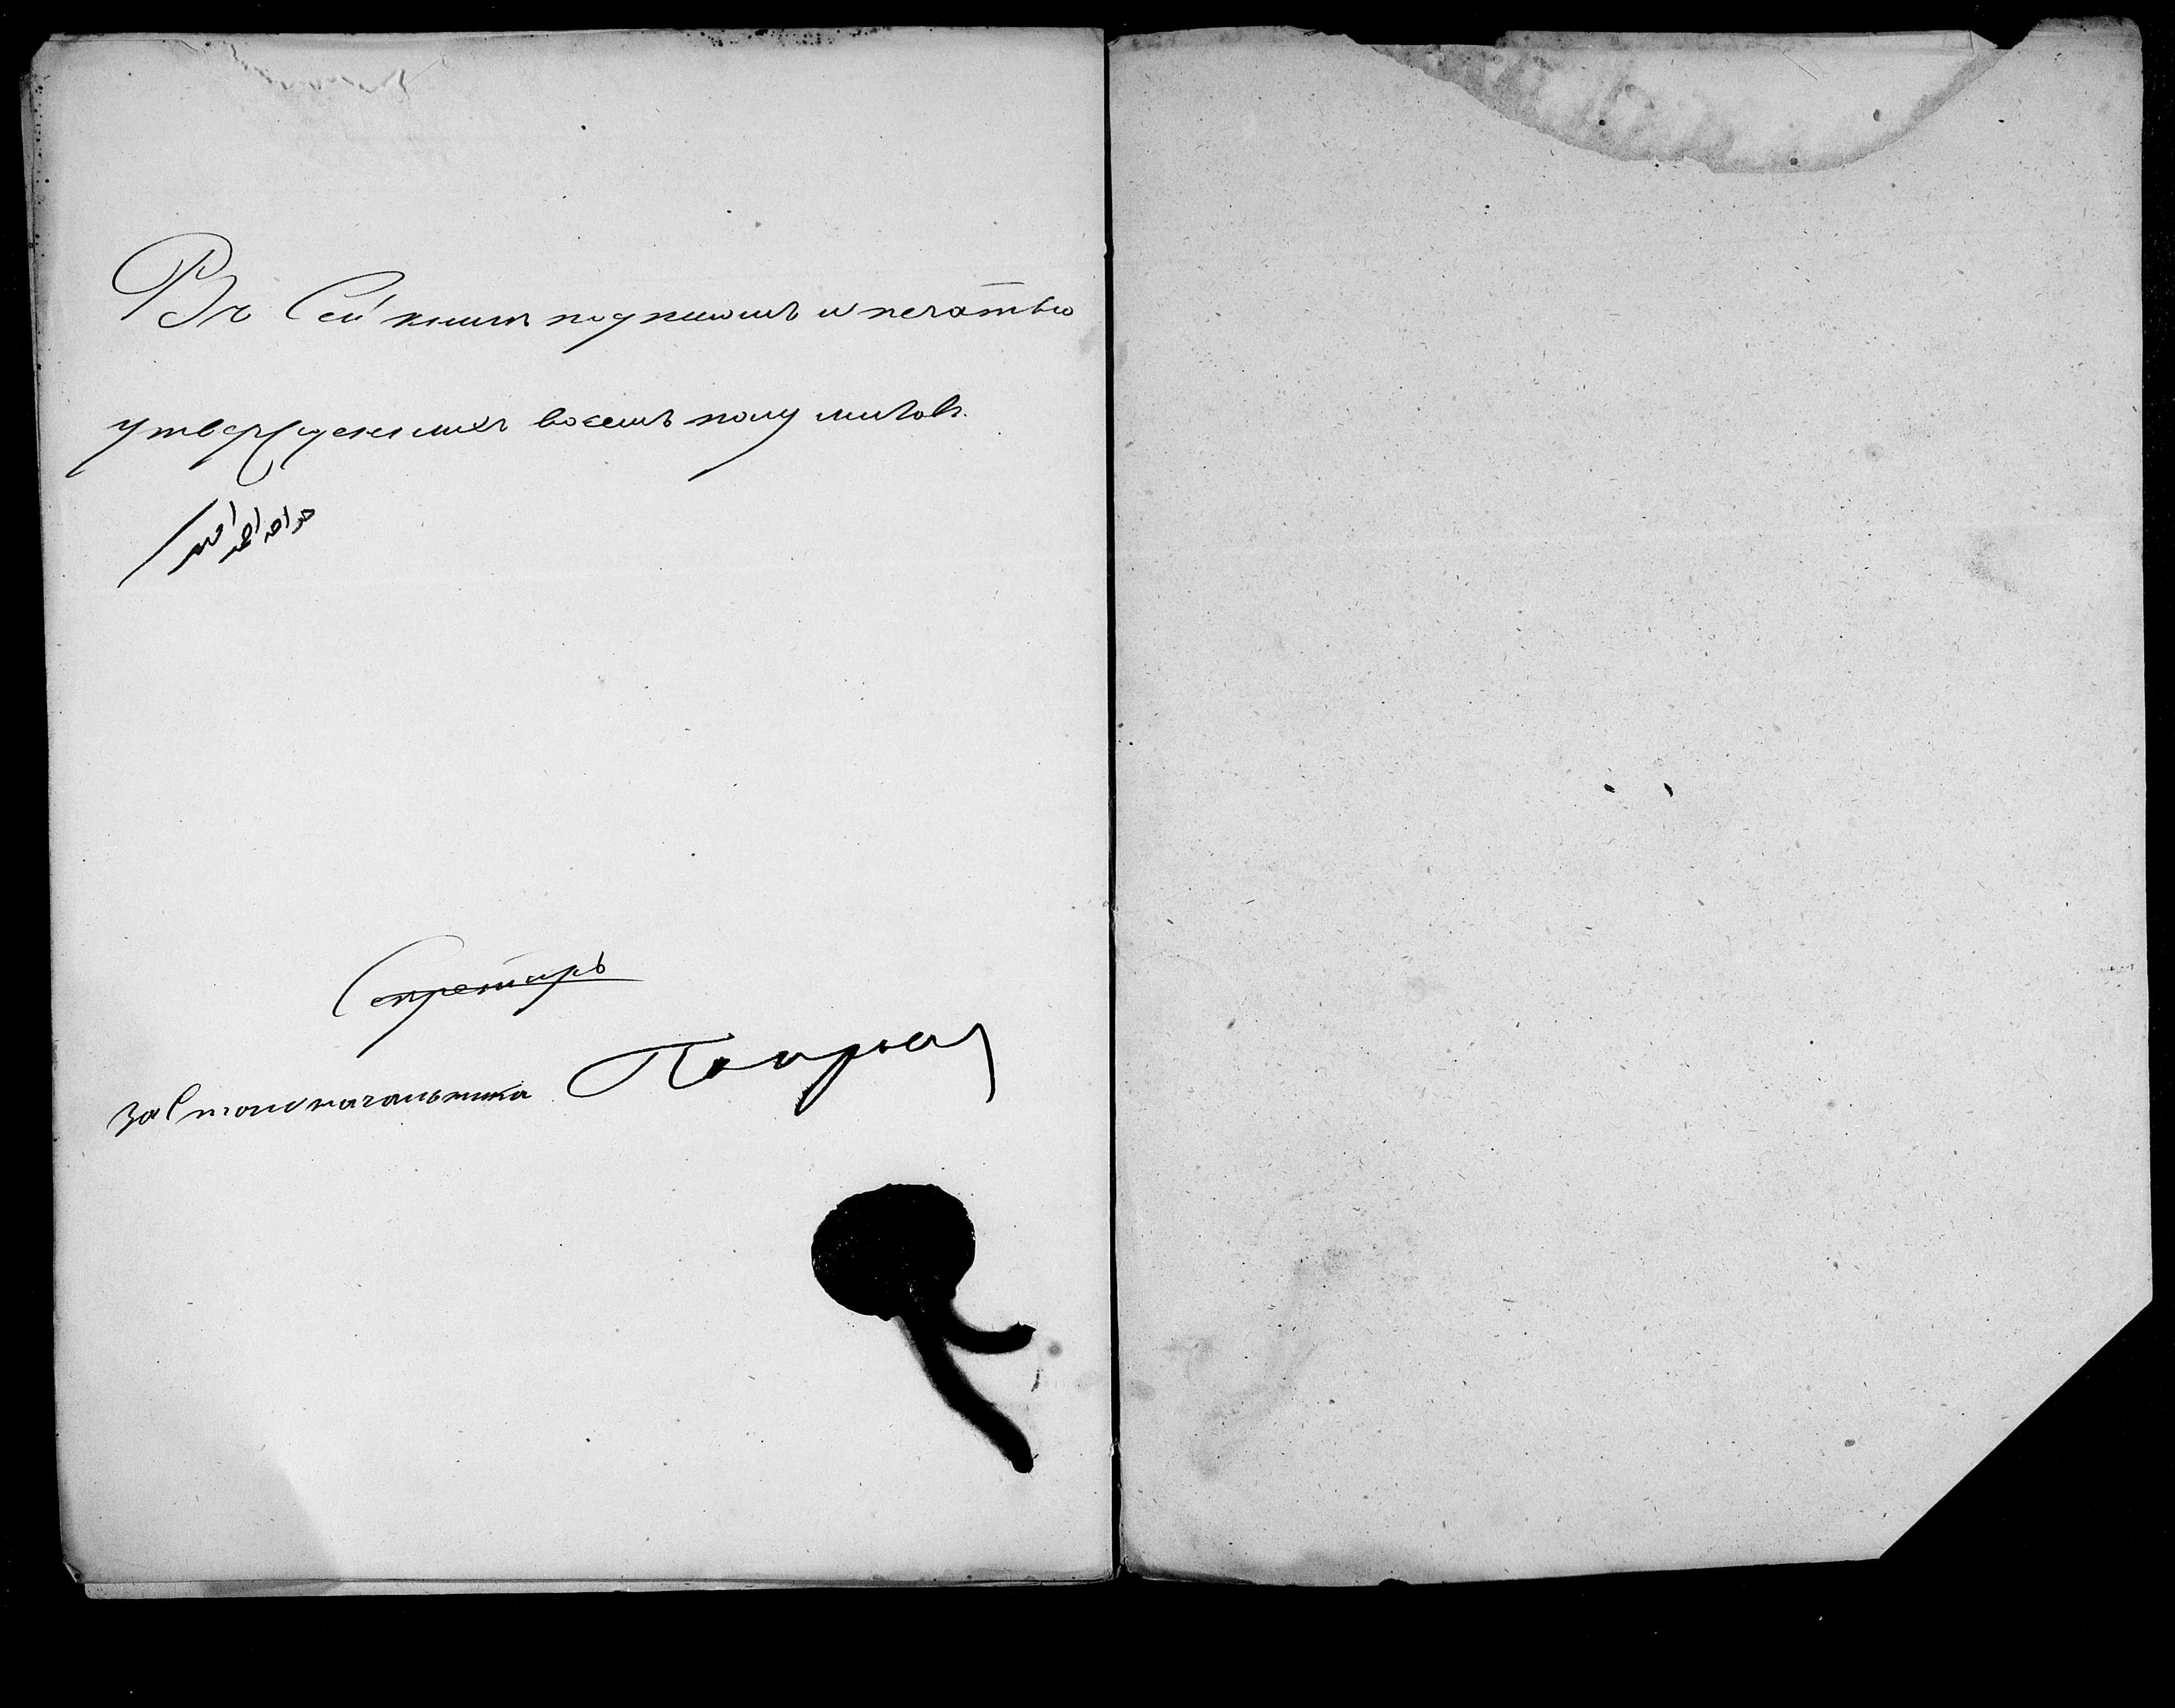 Въ сей книгѣ подписомъ и печатью
утвержденныхъ восемь полулистовъ.
Секретарь
за Столоначальника